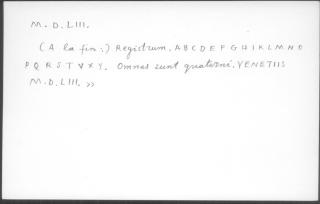 M. D. LIII.
(A la fin:) Registrum. A B C D E F G H I K L M N O
P Q R S T V X Y. Omnes sunt quaterni. VENETIIS
M.D.LIII. »